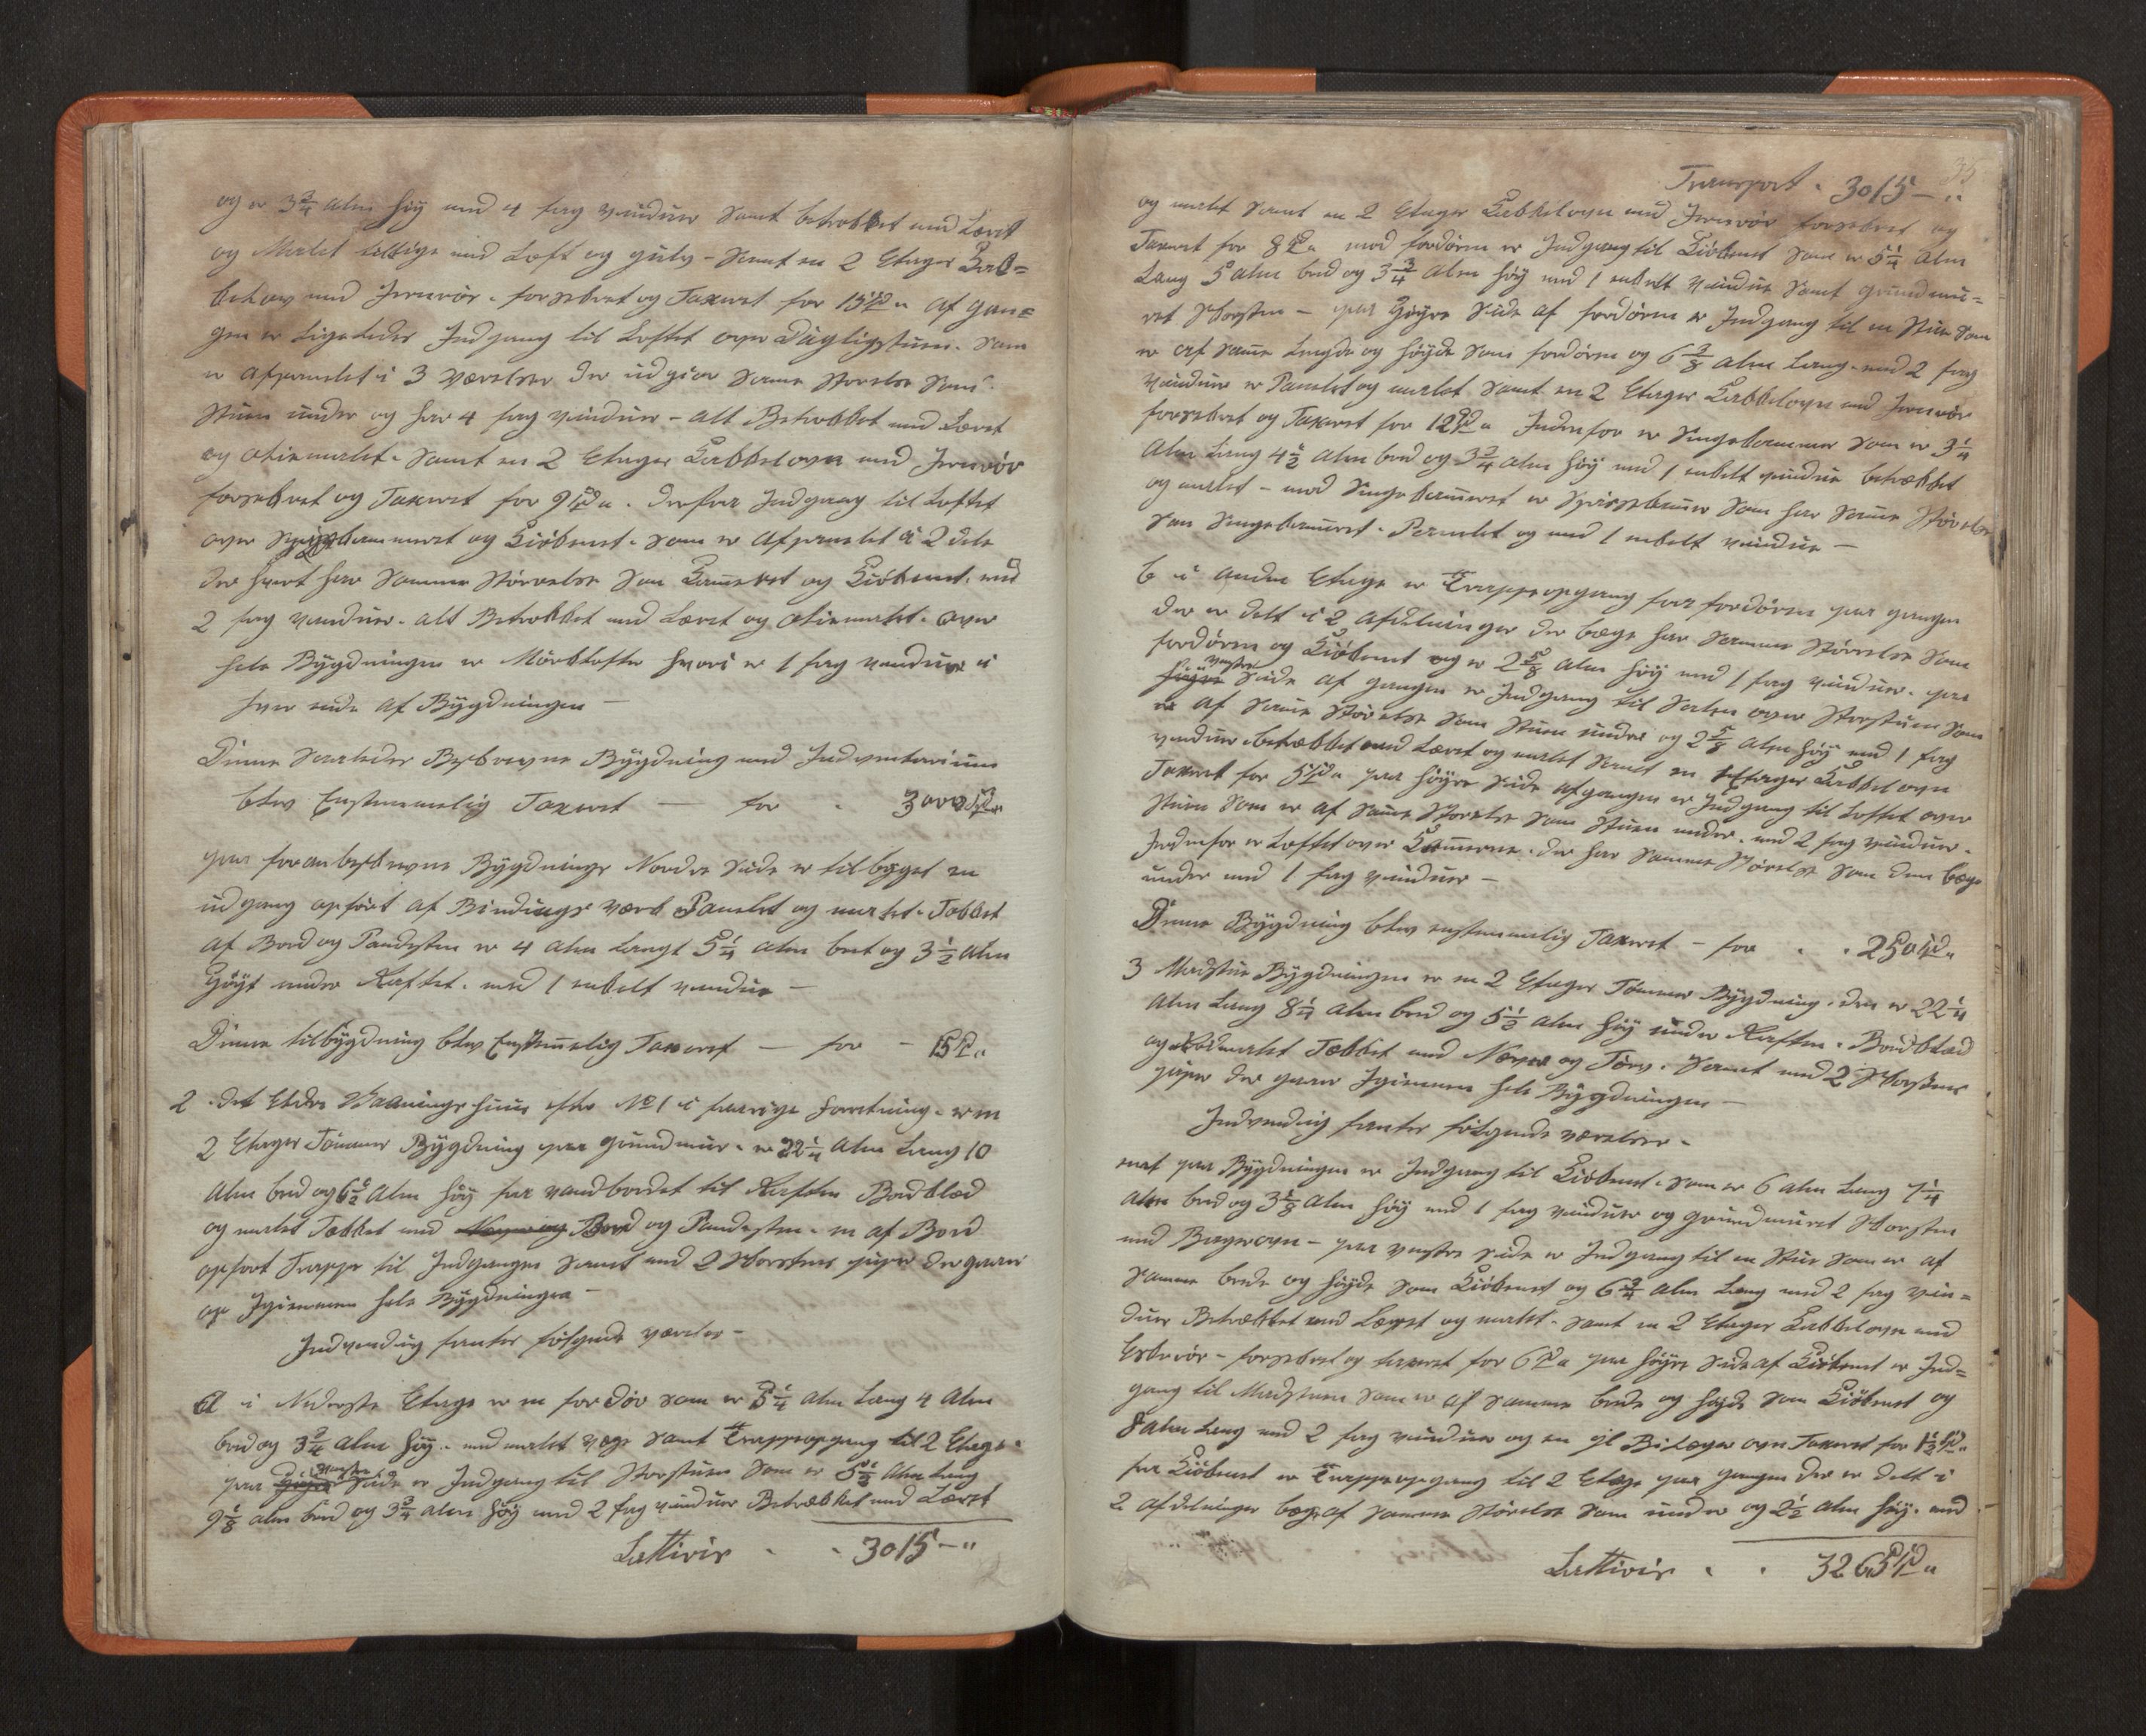 og er 3 3/4 alen høÿ med 4 fag vinduer Samt betrekket med Læret
og Malet tillige med Loft og gulv - Samt en 2 Etages Kak=
kelow med Jernrör. forsekret og Taxeret for 15 Spd " af gan=
gen er Ligeledes Indgang til Loftet over Dagligstuen. Som
er afpanelet i 3 værelser der udgiør Samme Storelse Som
Stuen under og har 4 fag vinduer - alt Betrekket med Læret
og oliemalet. Samt en 2 Etages Kakkelovn med Jernrör
forsekret og Taxeret for 9 Spd ". Derfra Indgang til Loftet
over Spisekammeret og Kiökenet. Som er Afpanelet i 2 dele
der hvert har Samme Störrelse Som Kam̄eret og Kiökenet. med
2 fag vinduer. alt Betrekket med Læret og oliemalet. over
hele Bÿgdningen er Mörklofter hvori er 1 fag vinduer i
hver ende af Bÿgdningen -
Denne Saaledes Beskrevne Bÿgdning med Indventarium
blev Enstemmelig Taxeret - for - 3000 Spd "
paa foranbeskrevne Bÿgdnings Nordre Side er tilbÿget en
udgang opfört af Bindings værk Panelet og malet. Tækket
af Bord og Pandesten er 4 alen Langt 5 1/4 alen bret og 3 1/2 Alen
Høÿt under Raftet. med 1 enkelt vindue -
Denne tilbÿgdning blev Enstem̄elig Taxeret - for - 15 Spd "
2. det Eldre Vaaningshuus efter No 1 i forrige forretning. er en
2 Etages Tömmer Bÿgdning paa grundmuur. er 22 1/4 Alen Lang 10
Alen bred og 6 1/2 Alen høÿ fra vandbordet til Raften Bordklæd
og malet Tækket med Næver og Bord og Pandesten. en af Bord
opfört Trappe til Indgangen Samt med 2 Skorstens piper der gaar
op Igiennem hele Bÿgdningen -
Indvendig fantes fölgende værelser -
a i Nederste Etage er en fordör som er 5 1/4 alen Lang 4 Alen
bred og 3 3/4 Alen høÿ. med malet væge Samt Trappeopgang til 2 Etage.
paa høÿre venstre Side er Indgang til Storstuen Som er 5 1/2 Alen Lang
9 1/8 alen bred og 3 3/4 alen høÿ med 2 fag vinduer Betrækket med Læret
Lattiris - - 3015 - "
35
Transport. 3015 - "
og malet Samt en 2 Etages Kakkelovn med Jernrör forsekret og
Taxeret for 8 Spd " mod fordören er Indgang til Kiökenet Som er 5 1/4 Alen
Lang 5 alen bred og 3 3/4 Alen høÿ med 1 enkelt vindue Samt grundmu=
ret Skorsten - paa Höÿre Side af fordören er Indgang til en Stue Som
er af Sam̄e Lengde og høÿde Som fordören og 6 3/8 alen Lang. med 2 fag
vinduer er Panelet og malet Samt en 2 Etages Kakkelovn med Jernrör
forsekret og Taxeret for 12 Spd " Indenfor er Sengekammer Som er 3 1/4
Alen Lang 4 1/2 alen bred og 3 3/4 alen høÿ med 1 enkelt vindue betrækket
og malet - mod Sengekam̄eret er Spisekam̄er Som har Sam̄e Störelse
Som Sengekam̄eret. Panelet og med 1 enkelt vindue -
b i anden Etage er Trappeopgang fra fordören paa gangen
der er delt i 2 Afdelninger der bæge har Samme Störrelse Som
fordören og Kiökenet og er 2 5/8 Alen høÿ med 1 fag vinduer. paa
høÿre venstre Side af gangen er Indgang til Salen over Storstuen Som
er af Sam̄e Störelse Som Stuen under og 2 5/8 Alen høÿ med 1 fag
vinduer betrækket med Læret og malet Samt en Etages Kakkelovn
Taxeret for 5 Spd " paa höÿre Side af gangen er Indgang til Loftet over
Stuen Som er af Sam̄e Störelse Som Stuen under. med 2 fag vinduer.
Indenfor er Loftet over Kam̄erne. der har Samme Störelse Som dem bæge
under med 1 fag vinduer -
Denne Bÿgdning blev enstemmelig Taxeret - for . . 250 Spd "
3 Madstue Bÿgdningen er en 2 Etages Tömmer Bÿgdning. den er 22 1/4
Alen Lang 8 1/4 Alen bred og 5 1/2 Alen høÿ under Raften. Bordklæd
og Rödmalet Tækket med Næver og Törv. Samt med 2 Skorstens
piper der gaar Igiennem hele Bÿgdningen -
Indvendig fantes fölgende værelser -
mit paa Bÿgdningen er Indgang til Kiökenet. Som er 6 alen Lang 7 1/4
alen bred og 3 1/8 Alen høÿ med 1 fag vinduer og grundmuret Skorsten
med Bagerovn - paa venstre side er Indgang til en Stue Som er af
Samme brede og høÿde Som Kiökenet og 6 3/4 Alen Lang med 2 fag vin=
duer Betrækket med Læret og malet. Samt en 2 Etages Kakkelovn med
- forsekret og taxeret for 6 Spd " paa høÿre Side af Kiökenet er Ind=
gang til Madstuen Som er af Samme brede og høÿde Som Kiökenet og
8 alen Lang med 2 fag vinduer og en gl Bilæger ovn Taxeret for 1 1/2 Spd "
fra Kiökenet er Trappeopgang til 2 Etage paa gangen der er delt i
2 afdelninger bæge af Samme Störelse Som under og 2 1/2 Alen høÿ. med
Lattiris . . 3265 Spd "